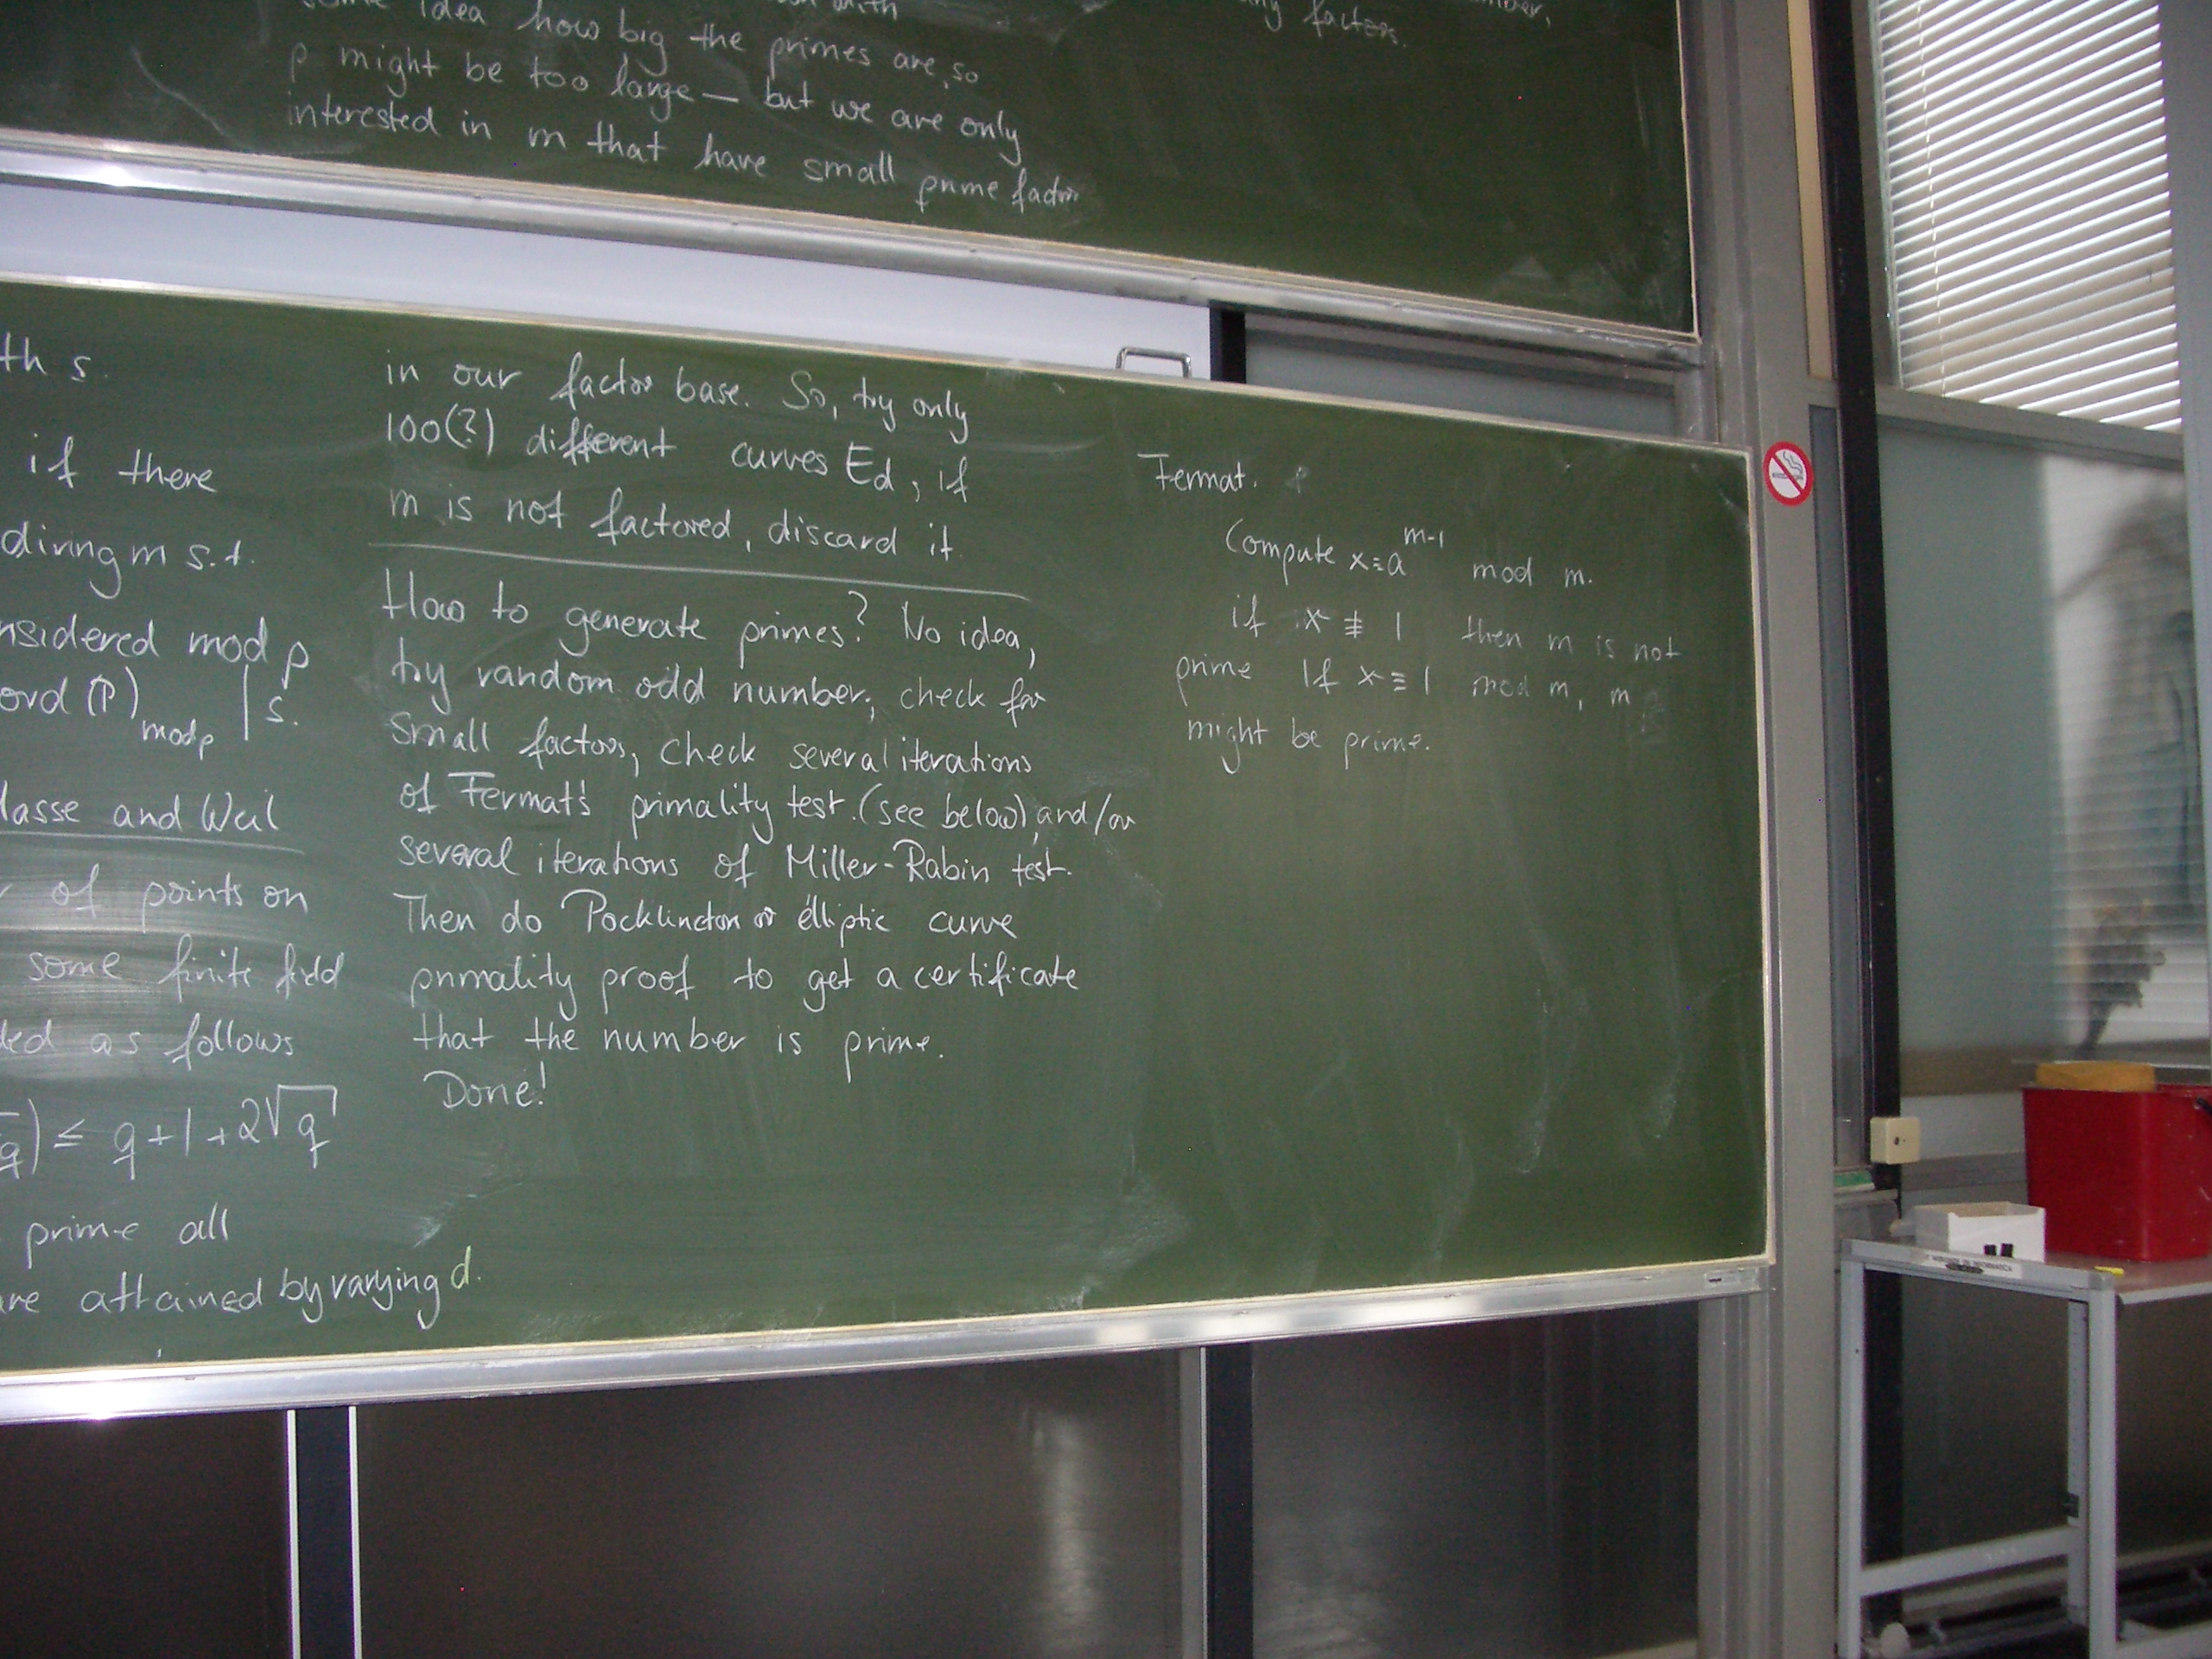 idea how big the primes are, so
p might be too large — but we are only
interested in m that have small prime
ny factors.
th s.
if there
diving m s.t.
nsidered mod p
ord (P) mod p | s.
lasse and Weil
of points on
some finite field
ded as follows
q) ≤ q+1+2√q
prime all
are attained by varying d.
in our factor base. So, try only
100(?) different curves Ed, if
m is not factored, discard it
How to generate primes? No idea,
try random odd number, check for
small factors, check several iterations
of Fermat's primality test. (see below) and/or
several iterations of Miller-Rabin test.
Then do Pocklincton or elliptic curve
primality proof to get a certificate
that the number is prime.
Done!
Fermat.
Compute x≡a^{m-1} mod m.
if x ≢ 1 then m is not
prime If x ≡ 1 mod m, m
might be prime.